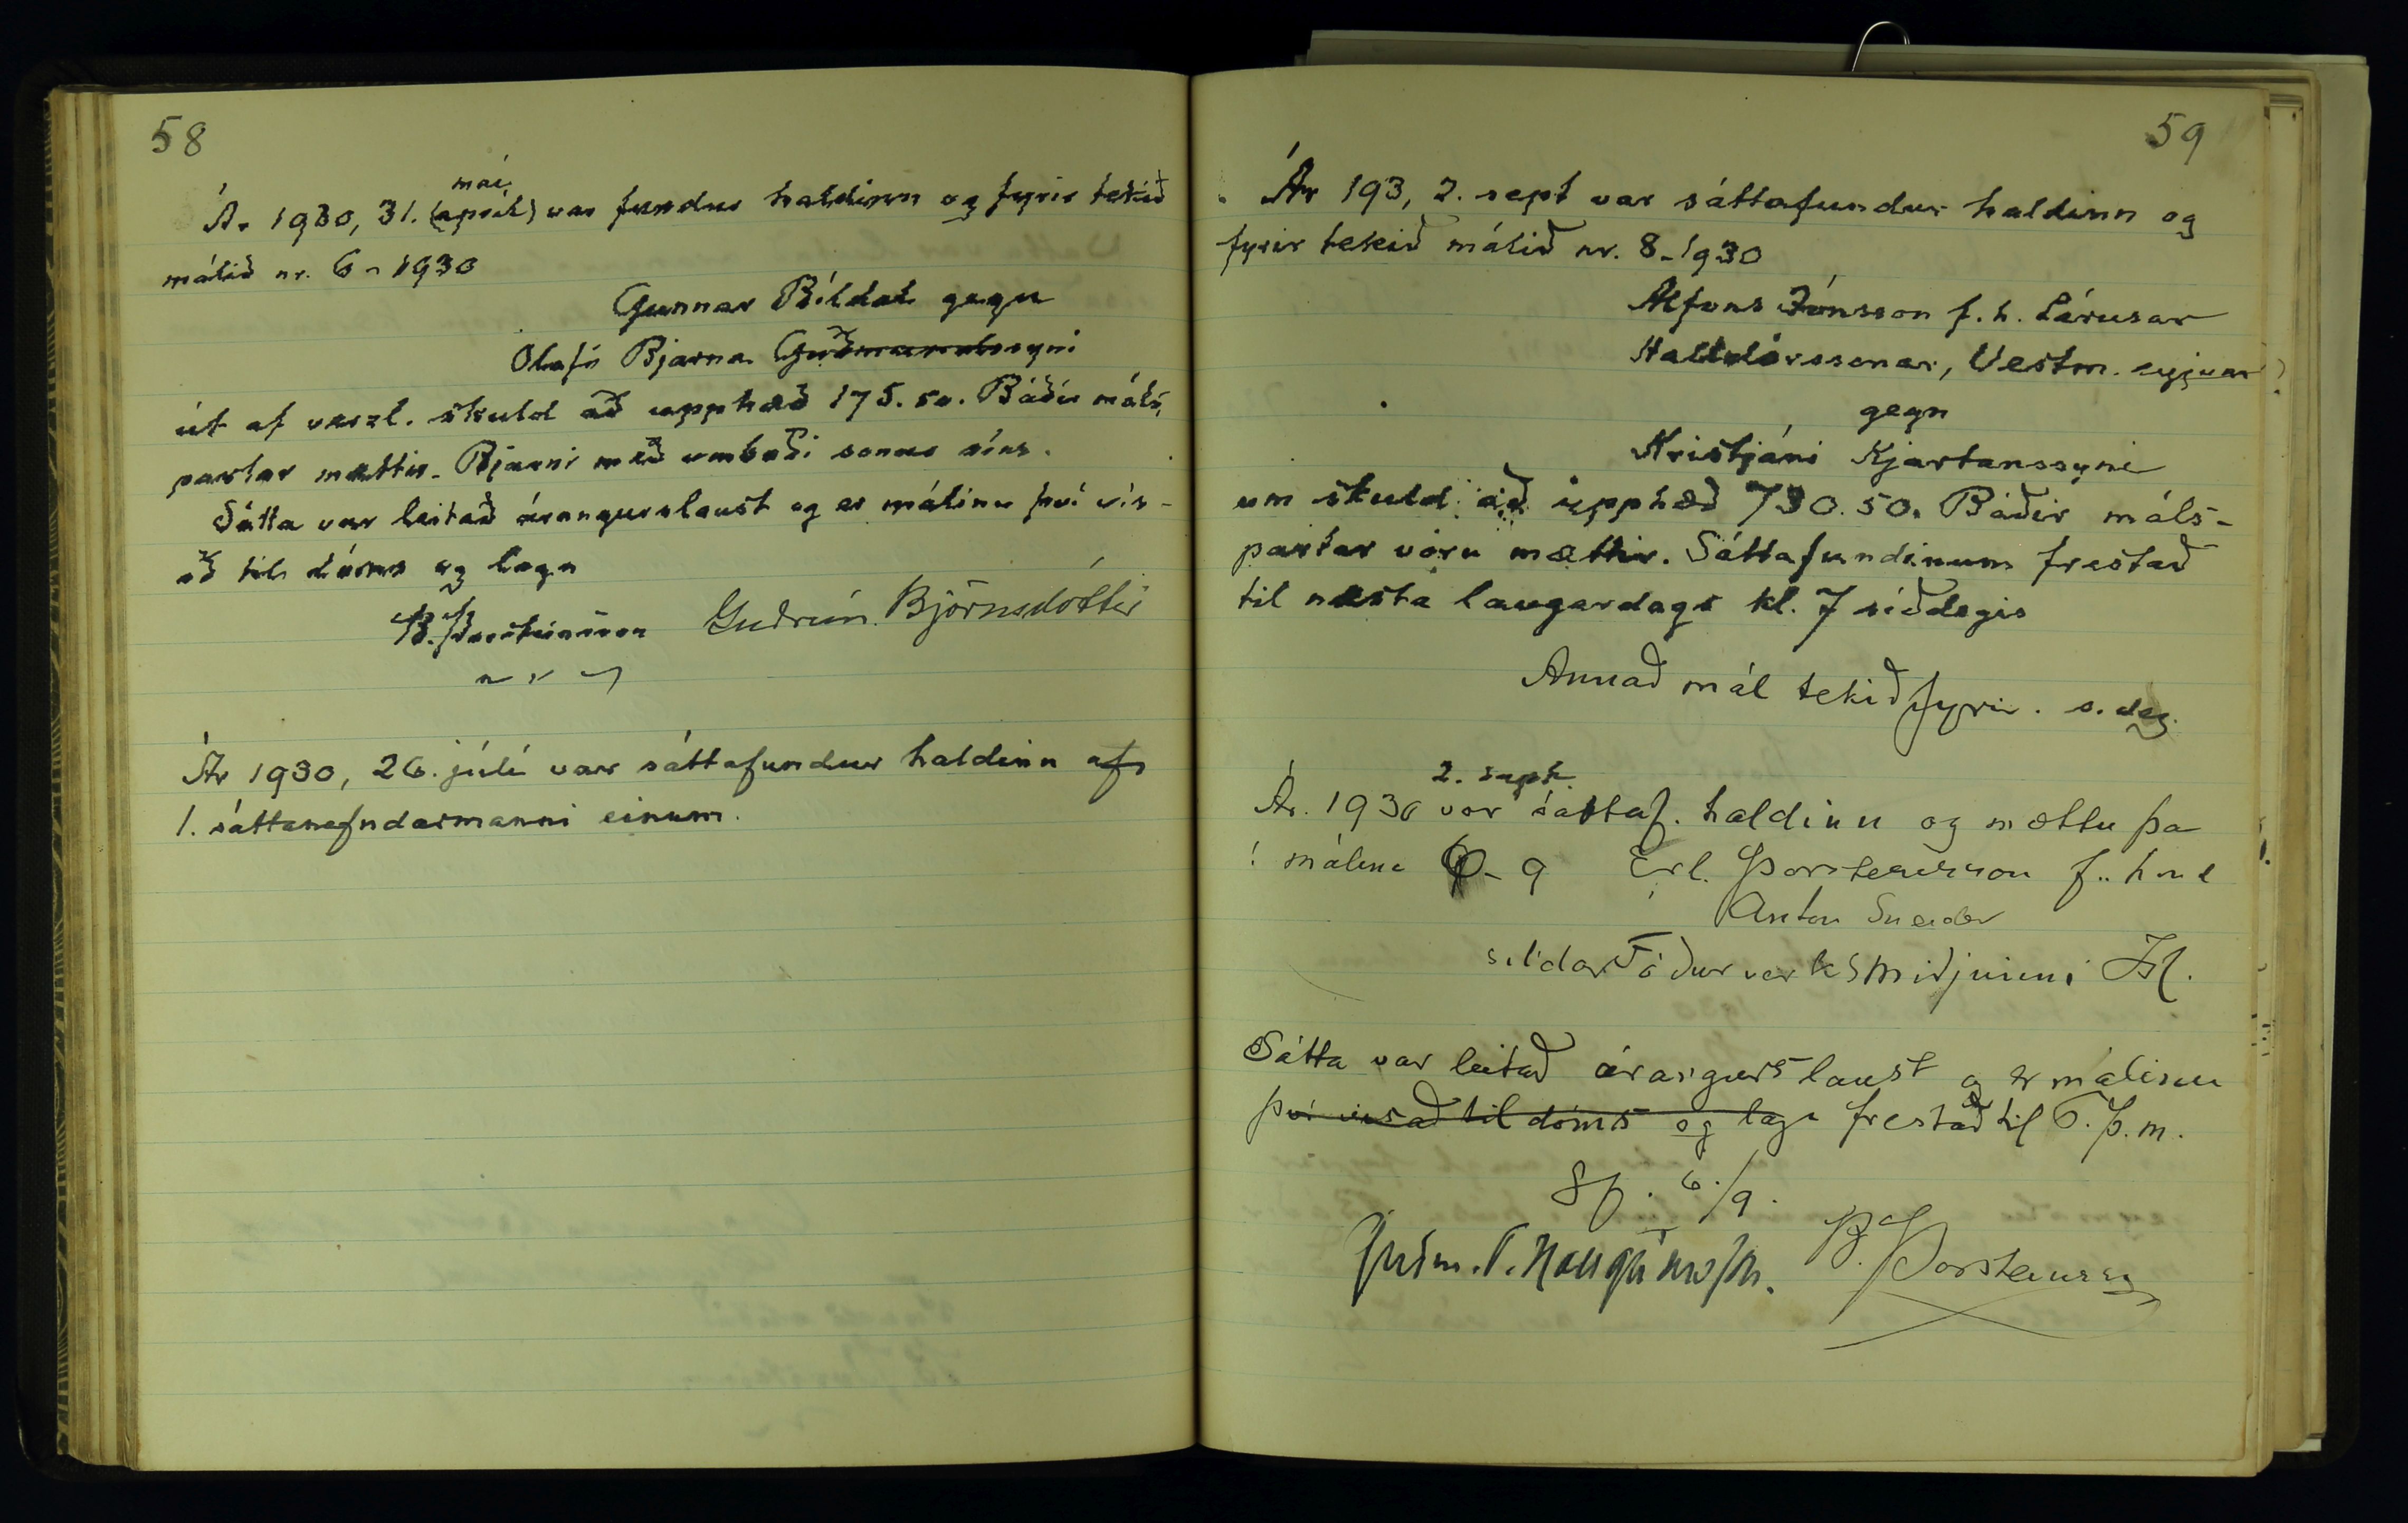 58
maí
Ár 1930, 31. (apríl) var fundur haldinn og fyrir tekið
málið nr. 6 - 1930
Gunnar Bíldal gegn
Ólafi Bjarna Guðmundssyni
út af verzl. skuld að upphæð 175.50. Báðir máls,
partar mættir. Bjarni með umboði sonar síns.
Sátta var leitað árangurslaust og er málinu því vís-
að til dóms og laga
B. Þorsteinsson Guðrún Björnsdóttir
Ár 1930, 26. júlí var sáttafundur haldinn af
1. sáttanefndarmanni einum.
59
Ár 193, 2. sept var sáttafundur haldinn og
fyrir tekið málið nr. 8-1930
Alfons Jónsson f.h. Lárusar
Halldórssonar, Vestm. eyjum
gegn
Kristjáni Kjartanssyni
um skuld að upphæð 730.50. Báðir máls-
partar voru mættir. Sáttafundinum frestað
til næsta laugardags kl. 7 síðdegis
Annað mál tekið fyrir. s. dag.
2. sept.
Ár. 1930 var sáttaf. haldinn og mættu þa
í máline - 9 Erl. Þorsteinsson f. hönd
Anton
síldarfóðurverksmiðjunni
Sátta var leitað árangurslaust og er málinu
því vísað til dóms og laga frestað til 6. þ.m.
Sf. 6./9.
B. Þorsteinsson